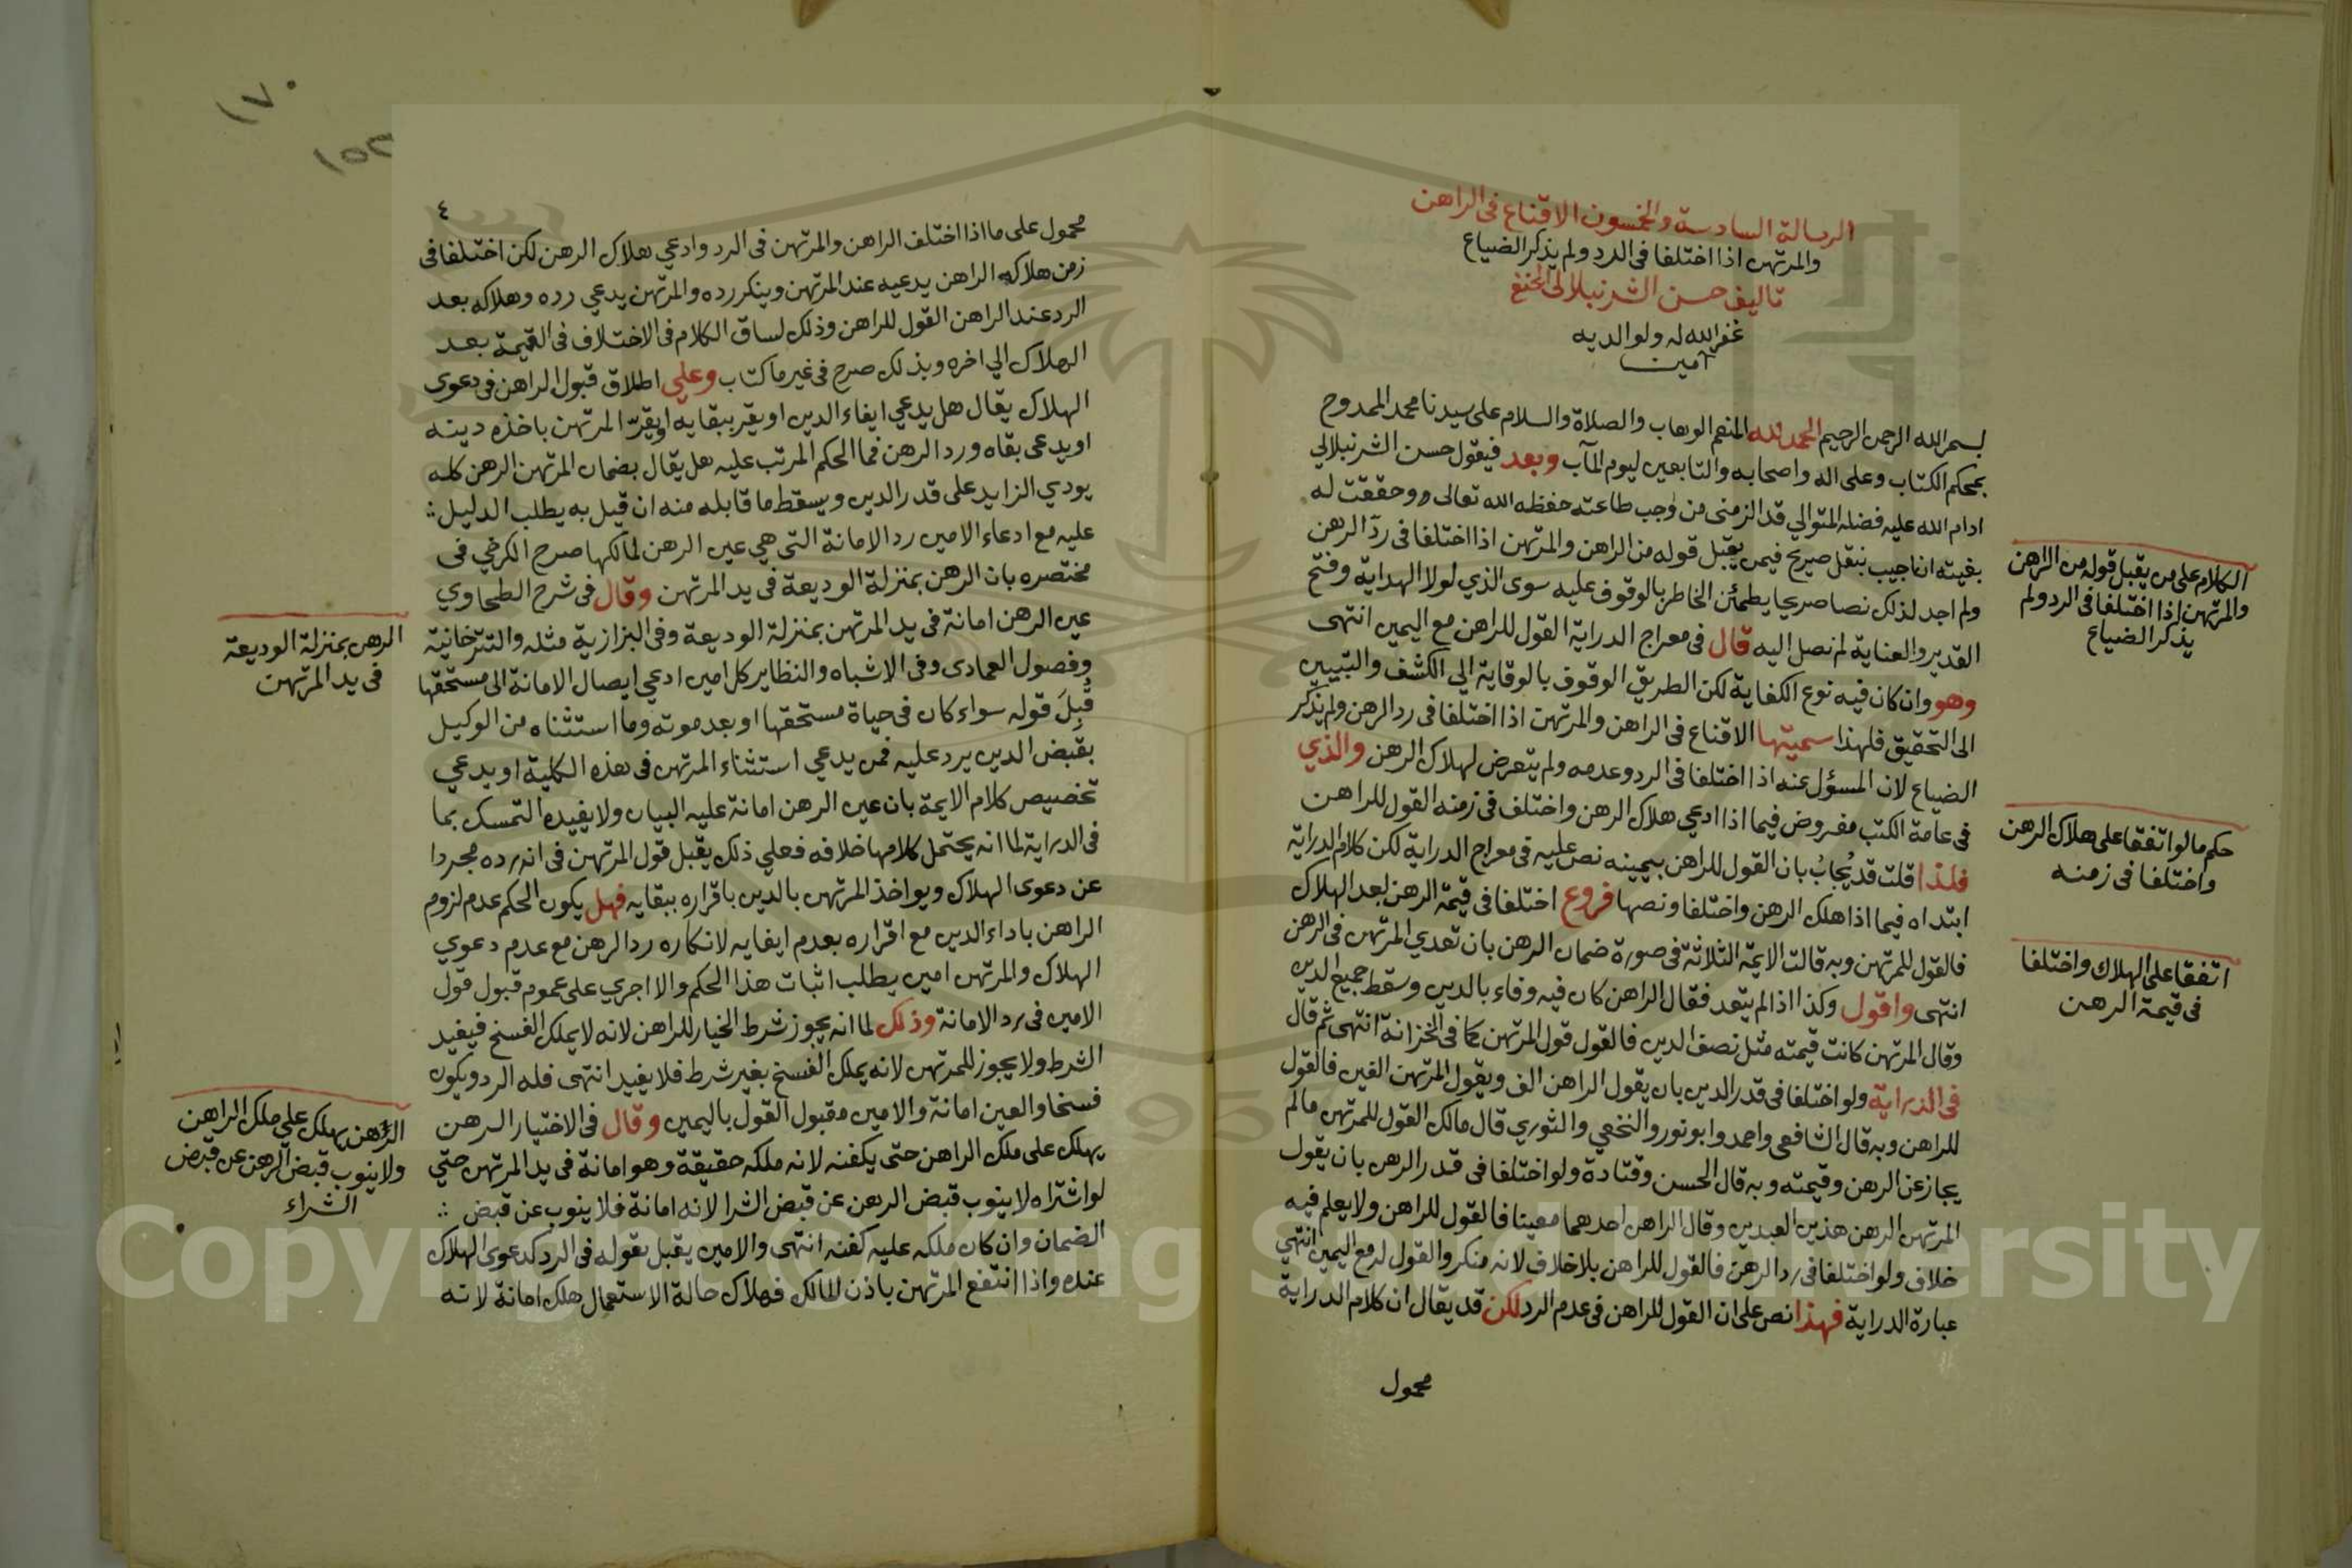 الرسالة السادسة والخمسون الاقناع فى الراهن
والمرتهن اذا اختلفا فى الرد ولم يذكر الضياع
تاليف حسن الشرنبلالى الحنفى
غفر الله له ولوالديه
آمين
بسم الله الرحمن الرحيم الحمد لله المنعم الوهاب والصلاة والسلام على سيدنا محمد الممدوح
بمحكم الكتاب وعلى اله واصحابه والتابعين ليوم المآب وبعد فيقول حسن الشرنبلالي
ادام الله عليه فضله المتوالي قد الزمنى من وجب طاعته حفظه الله تعالى ووحققت له
بغيته ان اجيب بنقل صريح فيمن يقبل قوله من الراهن والمرتهن اذا اختلفا فى رد الرهن
ولم اجد لذلك نصا صريحا يطمئن الخاطر بالوقوف عليه سوى الذي لولا الهداية وفتح
القدير والعناية لم نصل اليه قال فى معراج الدراية القول للراهن مع اليمين انتهى
وهو وان كان فيه نوع الكفاية لكن الطريق الوقوف بالوقاية الي الكشف والتبيين
الى التحقيق فلهذا سميتها الاقناع فى الراهن والمرتهن اذا اختلفا فى رد الرهن ولم يذكر
الضياع لان المسؤل عنه اذا اختلفا فى الرد وعدمه ولم يتعرض لهلاك الرهن والذي
فى عامة الكتب مفروض فيما اذا ادعي هلاك الرهن واختلف فى زمنه القول للراهن
فلذا قلت قد يُجابُ بان القول للراهن بيمينه نص عليه فى معراج الدراية لكن كلام الدراية
ابتداه فيما اذا هلك الرهن واختلفا ونصها فروع اختلفا فى قيمة الرهن بعد الهلاك
فالقول للمرتهن وبه قالت الايمة الثلاثة فى صورة ضمان الرهن بان تعدي المرتهن فى الرهن
انتهى واقول وكذا اذا لم يتعد فقال الراهن كان فيه وفاء بالدين وسقط جميع الدين
وقال المرتهن كانت قيمته مثل نصف الدين فالقول قول المرتهن كما فى الخزانة انتهى ثم قال
فى الدراية ولو اختلفا فى قدر الدين بان يقول الراهن الف ويقول المرتهن الفين فالقول
للراهن وبه قال الشافعى واحمد وابو ثور والنخعي والثوري قال مالك القول للمرتهن مالم
يجاز عن الرهن وقيمته وبه قال الحسن وقتادة ولو اختلفا فى قدر الرهن بان يقول
المرتهن الرهن هذين العبدين وقال الراهن احدهما معينا فالقول للراهن ولا يعلم فيه
خلاف ولو اختلفا فى رد الرهن فالقول للراهن بلا خلاف لانه منكر والقول له مع اليمين انتهي
عبارة الدراية فهذا نص على ان القول للراهن فى عدم الرد لكن قد يقال ان كلام الدراية
محمول
الكلام على من يقبل قوله من الراهن
والمرتهن اذا اختلفا فى الرد ولم
يذكر الضياع
حكم ما لو اتفقا على هلاك الرهن
واختلفا فى زمنه
اتفقا على الهلاك واختلفا
فى قيمة الرهن
١٧٠
١٥٢
٤
محمول على ما اذا اختلف الراهن والمرتهن فى الرد وادعي هلاك الرهن لكن اختلفا فى
زمن هلاكه الراهن يدعيه عند المرتهن وينكر رده والمرتهن يدعي رده وهلاكه بعد
الرد عند الراهن القول للراهن وذلك لساق الكلام فى الاختلاف فى القيمة بعد
الهلاك الي اخره وبذلك صرح فى غير ما كتاب وعلى اطلاق قبول الراهن فى دعوى
الهلاك يقال هل يدعي ايفاء الدين او يقر ببقايه او يقرّ المرتهن باخذه دينه
او يدعى بقاه ورد الرهن فما الحكم المرتب عليه هل يقال بضمان المرتهن الرهن كله
يودي الزايد على قدر الدين ويسقط ما قابله منه ان قيل به يطلب الدليل
عليه مع ادعاء الامين رد الامانة التى هي عين الرهن لمالكها صرح الكرخي فى
مختصره بان الرهن بمنزلة الوديعة فى يد المرتهن وقال فى شرح الطحاوي
عين الرهن امانة فى يد المرتهن بمنزلة الوديعة وفى البزازية مثله والتترخانية
وفصول العمادى وفى الاشباه والنظاير كل امين ادعي ايصال الامانة الى مستحقها
قُبِلَ قوله سواء كان فى حياة مستحقها او بعد موته وما استثناه من الوكيل
بقبض الدين يرد عليه فمن يدعي استثناء المرتهن فى هذه الكلية او يدعي
تخصيص كلام الايمة بان عين الرهن امانة عليه البيان ولا يفيده التمسك بما
فى الدراية لما انه يحتمل كلامها خلافه فعلي ذلك يقبل قول المرتهن فى انه رده مجردا
عن دعوى الهلاك ويواخذ المرتهن بالدين باقراره ببقايه فهل يكون الحكم عدم لزوم
الراهن باداء الدين مع اقراره بعدم ايفايه لانكاره رد الرهن مع عدم دعوي
الهلاك والمرتهن امين يطلب اثبات هذا الحكم والا اجري على عموم قبول قول
الامين فى رد الامانة وذلك لما انه يجوز شرط الخيار للراهن لانه لا يملك الفسخ فيفيد
الشرط ولا يجوز للمرتهن لانه يملك الفسخ بغير شرط فلا يفيد انتهى فله الرد ويكون
فسخا والعين امانة والامين مقبول القول باليمين وقال فى الاختيار الرهن
يهلك على ملك الراهن حتى يكفنه لانه ملكه حقيقة وهو امانة فى يد المرتهن حتي
لو اشتراه لا ينوب قبض الرهن عن قبض الشرا لانه امانة فلا ينوب عن قبض
الضمان وان كان ملكه عليه كفنه انتهى والامين يقبل قوله فى الرد كدعوى الهلاك
عنده واذا انتفع المرتهن باذن المالك فهلاك حالة الاستعمال هلك امانة لانه
الرهن بمنزلة الوديعة
فى يد المرتهن
الرهن يهلك علي ملك الراهن
ولا ينوب قبض الرهن عن قبض
الشراء
Copyright © King Saud University